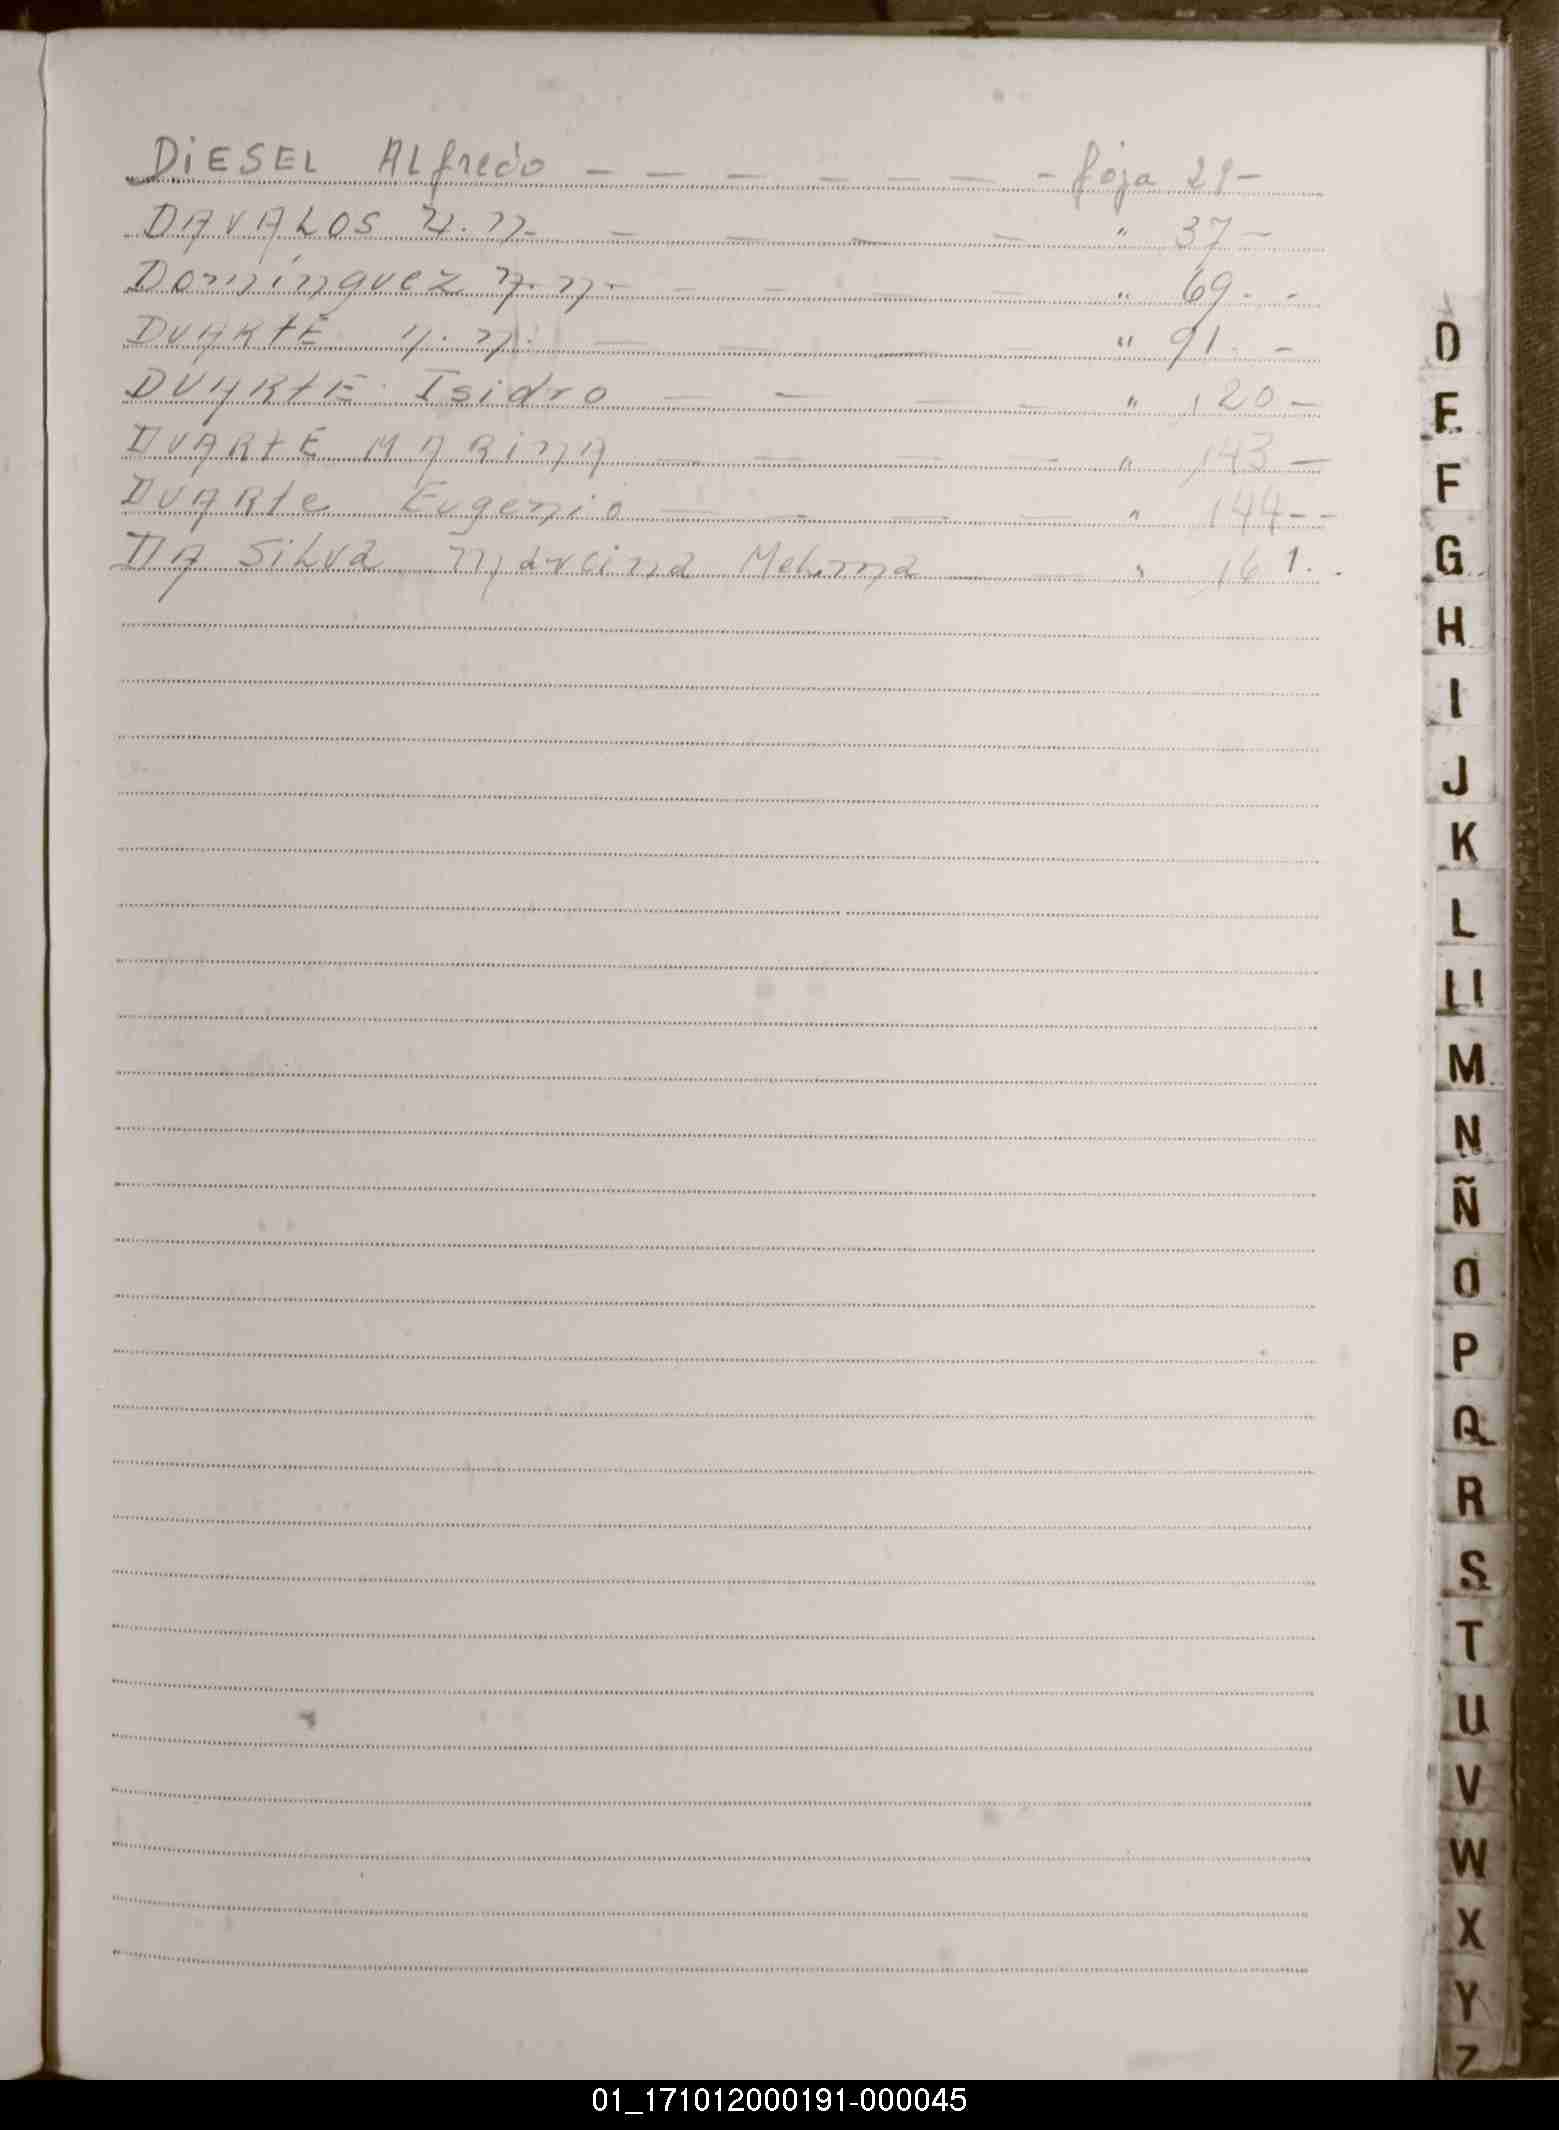 DiESEL ALfredo - - - - - - - foja 29 -
DAVALOS N.N. - - - - " 37 -
Domínguez N.N. - - - - - " 69. -
DUARtE N.N. - - - - - " 91. -
DUARtE Isidro - - - - " 120 -
DUARtE MARINA - - - - " 143 -
DUARte Eugenio - - - - " 144 - -
DA SiLva Marcina - - " 161. .
D
E
F
G
H
I
J
K
L
Ll
M
N
Ñ
O
P
Q
R
S
T
U
V
W
X
Y
Z
01_171012000191-000045